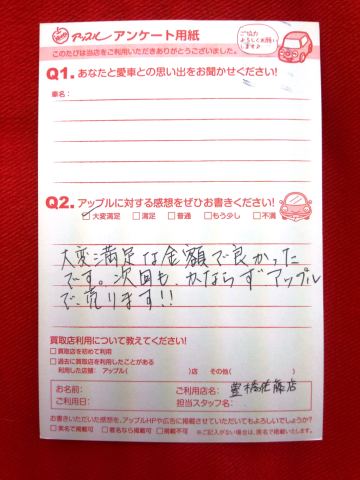 アップル アンケート用紙
ご協力
よろしくお願い
します♪
このたびは当店をご利用いただきありがとうございました。
Q1. あなたと愛車との思い出をお聞かせください!
車名:
Q2. アップルに対する感想をぜひお書きください!
☑大変満足 □満足 □普通 □もう少し □不満
大変満足な金額で良かった
です。次回も、かならずアップル
で売ります!!
買取店利用について教えてください!
□買取店を初めて利用
□過去に買取店を利用したことがある
利用した店舗: アップル( )店 その他( )
お名前: ご利用店名: 豊橋佐藤店
ご利用日: 担当スタッフ名:
お書きいただいた感想を、アップルHPや広告に掲載させていただいてもよろしいでしょうか?
□実名で掲載可 □匿名なら掲載可 □掲載不可 ※ご記入がない場合は、匿名で掲載いたします。